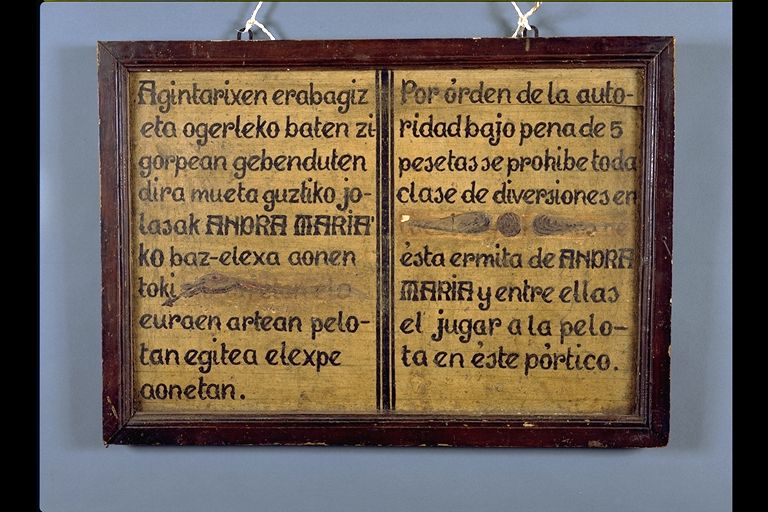 Agintarixen erabagiz
eta ogerleko baten zi-
gorpean gebenduten
dira mueta guztiko jo-
lasak ANDRA MARIA'
ko baz-elexa aonen
toki
euraen artean pelo-
tan egitea elexpe
aonetan.
Por órden de la auto-
ridad bajo pena de 5
pesetas se prohibe toda
clase de diversiones en
ésta ermita de ANDRA
MARIA y entre ellas
el jugar a la pelo-
ta en éste pórtico.